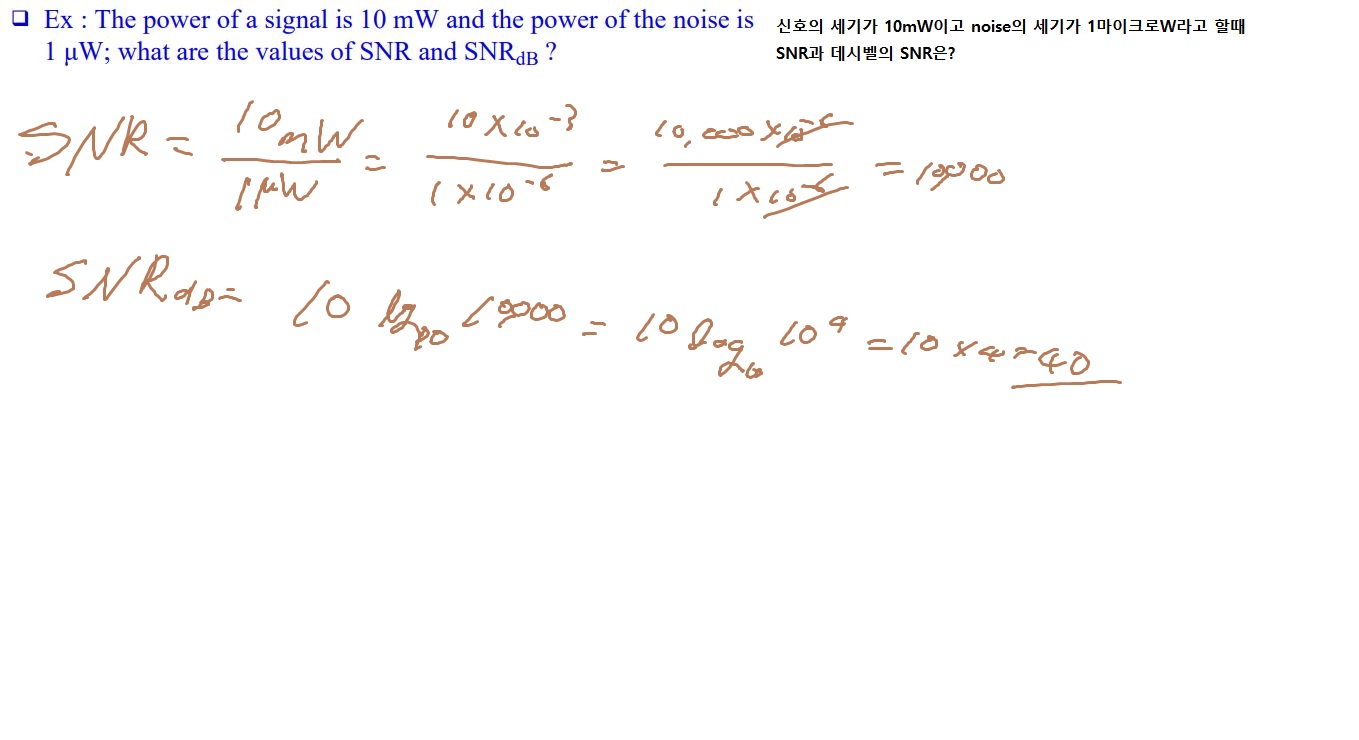 ❑ Ex : The power of a signal is 10 mW and the power of the noise is
1 μW; what are the values of SNR and SNR_dB ?
신호의 세기가 10mW이고 noise의 세기가 1마이크로W라고 할때
SNR과 데시벨의 SNR은?
SNR = 10mW / 1μW = 10 × 10^-3 / 1 × 10^-6 = 10,000 × 10^-6 / 1 × 10^-6 = 10000
SNR_dB = 10 log_10 10000 = 10 log_10 10^4 = 10 × 4 = 40